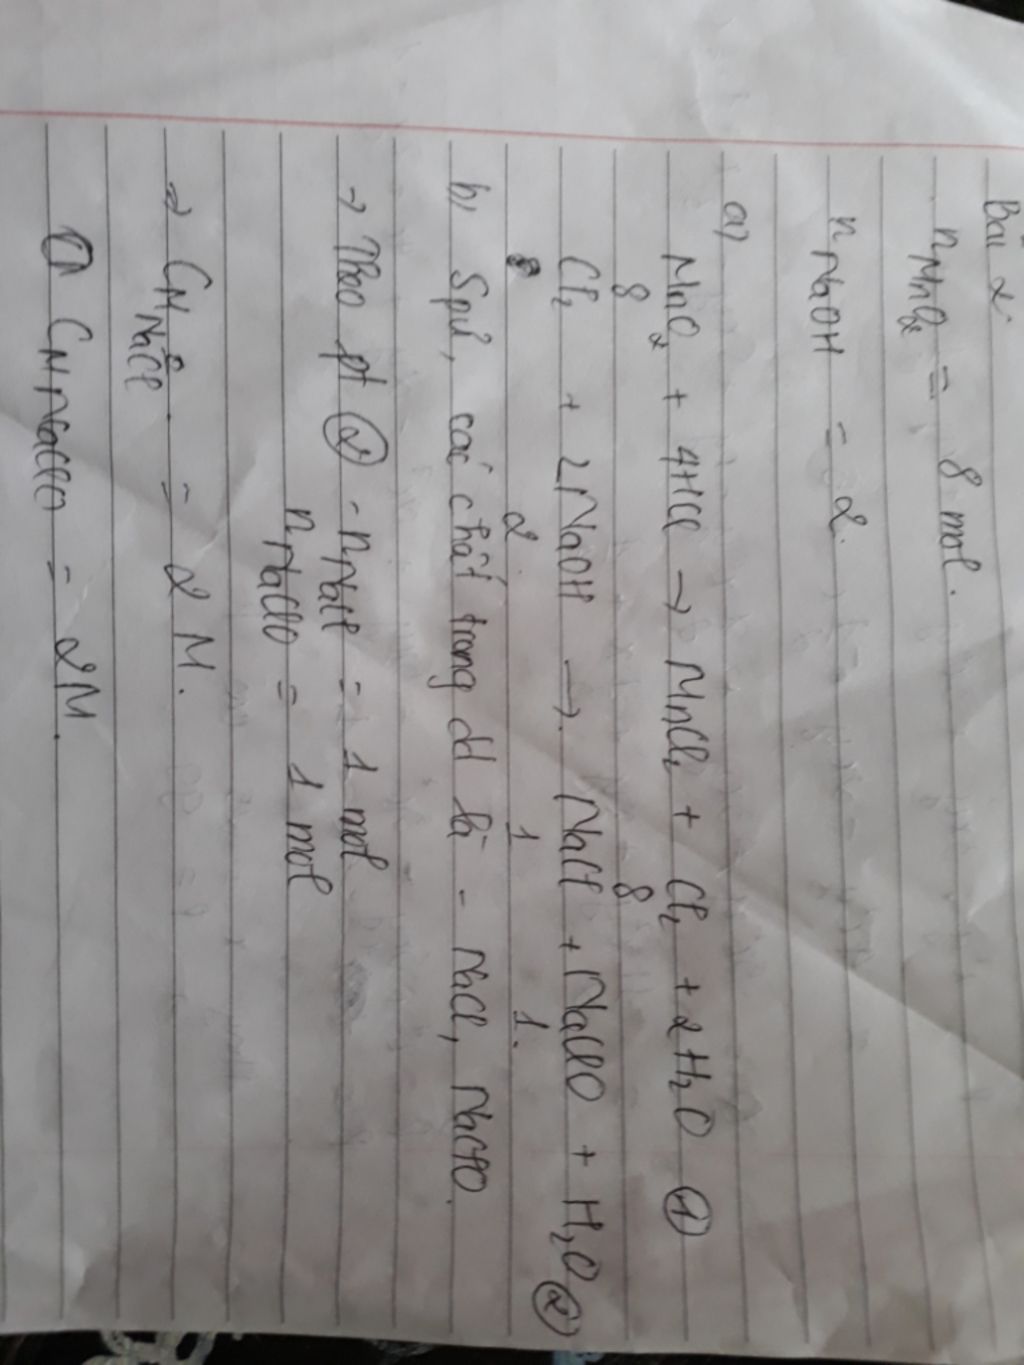 Bài 2:
nMnO2 = 8 mol.
nNaOH = 2.
a)
MnO2 + 4HCl → MnCl2 + Cl2 + 2H2O (1)
8 8
Cl2 + 2NaOH → NaCl + NaClO + H2O (2)
2 1 1.
b) Spứ, các chất trong dd là - NaCl, NaClO.
→ Theo pt (2) - nNaCl = 1 mol
nNaClO = 1 mol
→ CM NaCl = 2 M.
CM NaClO = 2M.